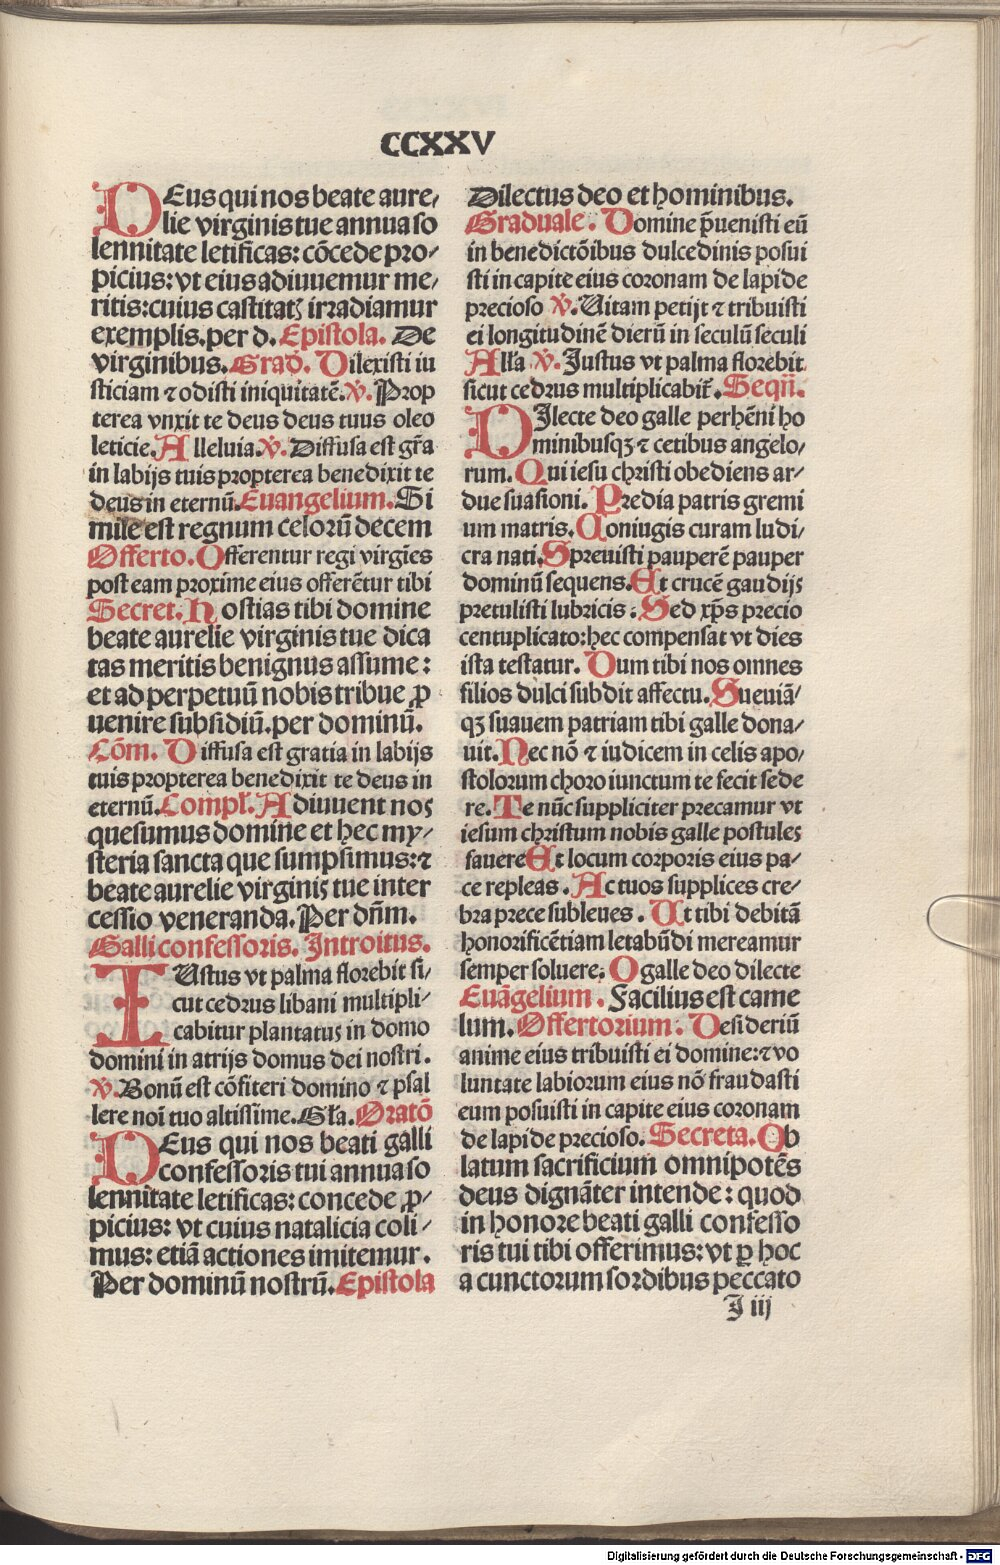 CCXXV
DEus qui nos beate aure/
lie virginis tue annua so
lennitate letificas: cõcede pro/
picius: vt eius adiuuemur me/
ritis: cuius castitatꝭ irradiamur
exemplis. per d. Epistola. De
virginibus. Grad. Dilexisti iu
sticiam ⁊ odisti iniquitatẽ. ℣. Prop
terea vnxit te deus deus tuus oleo
leticie. Alleluia. ℣. Diffusa est gr̃a
in labijs tuis propterea benedixit te
deus in eternũ. Euangelium. Si
mile est regnum celorũ decem
Offerto. Offerentur regi virgĩes
post eam proxime eius offerẽtur tibi
Secret. Hostias tibi domine
beate aurelie virginis tue dica
tas meritis benignus assume:
et ad perpetuũ nobis tribue ꝓ
uenire subsidiũ. per dominũ.
Cõm. Diffusa est gratia in labijs
tuis propterea benedixit te deus in
eternũ. Compl̃. Adiuuent nos
quesumus domine et hec my/
steria sancta que sumpsimus: ⁊
beate aurelie virginis tue inter
cessio veneranda. Per dñm.
Galli confessoris. Introitus.
IUstus vt palma florebit si/
cut cedrus libani multipli/
cabitur plantatus in domo
domini in atrijs domus dei nostri.
℣. Bonũ est cõfiteri domino ⁊ psal
lere noĩ tuo altissime. Gl̃a. Oratõ
DEus qui nos beati galli
confessoris tui annua so
lennitate letificas: concede ꝓ/
picius: vt cuius natalicia coli/
mus: etiã actiones imitemur.
Per dominũ nostrũ. Epistola
Dilectus deo et hominibus.
Graduale. Domine p̃uenisti eũ
in benedictõibus dulcedinis posui
sti in capite eius coronam de lapide
precioso ℣. Uitam petijt ⁊ tribuisti
ei longitudinẽ dierũ in seculũ seculi
All̃a ℣. Justus vt palma florebit
sicut cedrus multiplicabit̃. Seqũ.
DJlecte deo galle perhẽni ho
minibusqꝫ ⁊ cetibus angelo/
rum. Qui iesu christi obediens ar/
due suasioni. Predia patris gremi
um matris. Coniugis curam ludi/
cra nati. Spreuisti pauperẽ pauper
dominũ sequens. Et crucẽ gaudijs
pretulisti lubricis. Sed xp̃s precio
centuplicato: hec compensat vt dies
ista testatur. Dum tibi nos omnes
filios dulci subdit affectu. Sueuiã/
qꝫ suauem patriam tibi galle dona/
uit. Nec nõ ⁊ iudicem in celis apo/
stolorum choro iunctum te fecit sede
re. Te nũc suppliciter precamur vt
iesum christum nobis galle postules
fauere Et locum corporis eius pa/
ce repleas. Ac tuos supplices cre/
bra prece subleues. Ut tibi debitã
honorificẽtiam letabũdi mereamur
semper soluere: O galle deo dilecte
Euãgelium. Facilius est came
lum. Offertorium. Desideriũ
anime eius tribuisti ei domine: ⁊ vo
luntate labiorum eius nõ fraudasti
eum posuisti in capite eius coronam
de lapide precioso. Secreta. Ob
latum sacrificium omnipotẽs
deus dignãter intende: quod
in honore beati galli confesso
ris tui tibi offerimus: vt ꝑ hoc
a cunctorum sordibus peccato
J iij
Digitalisierung gefördert durch die Deutsche Forschungsgemeinschaft - DFG